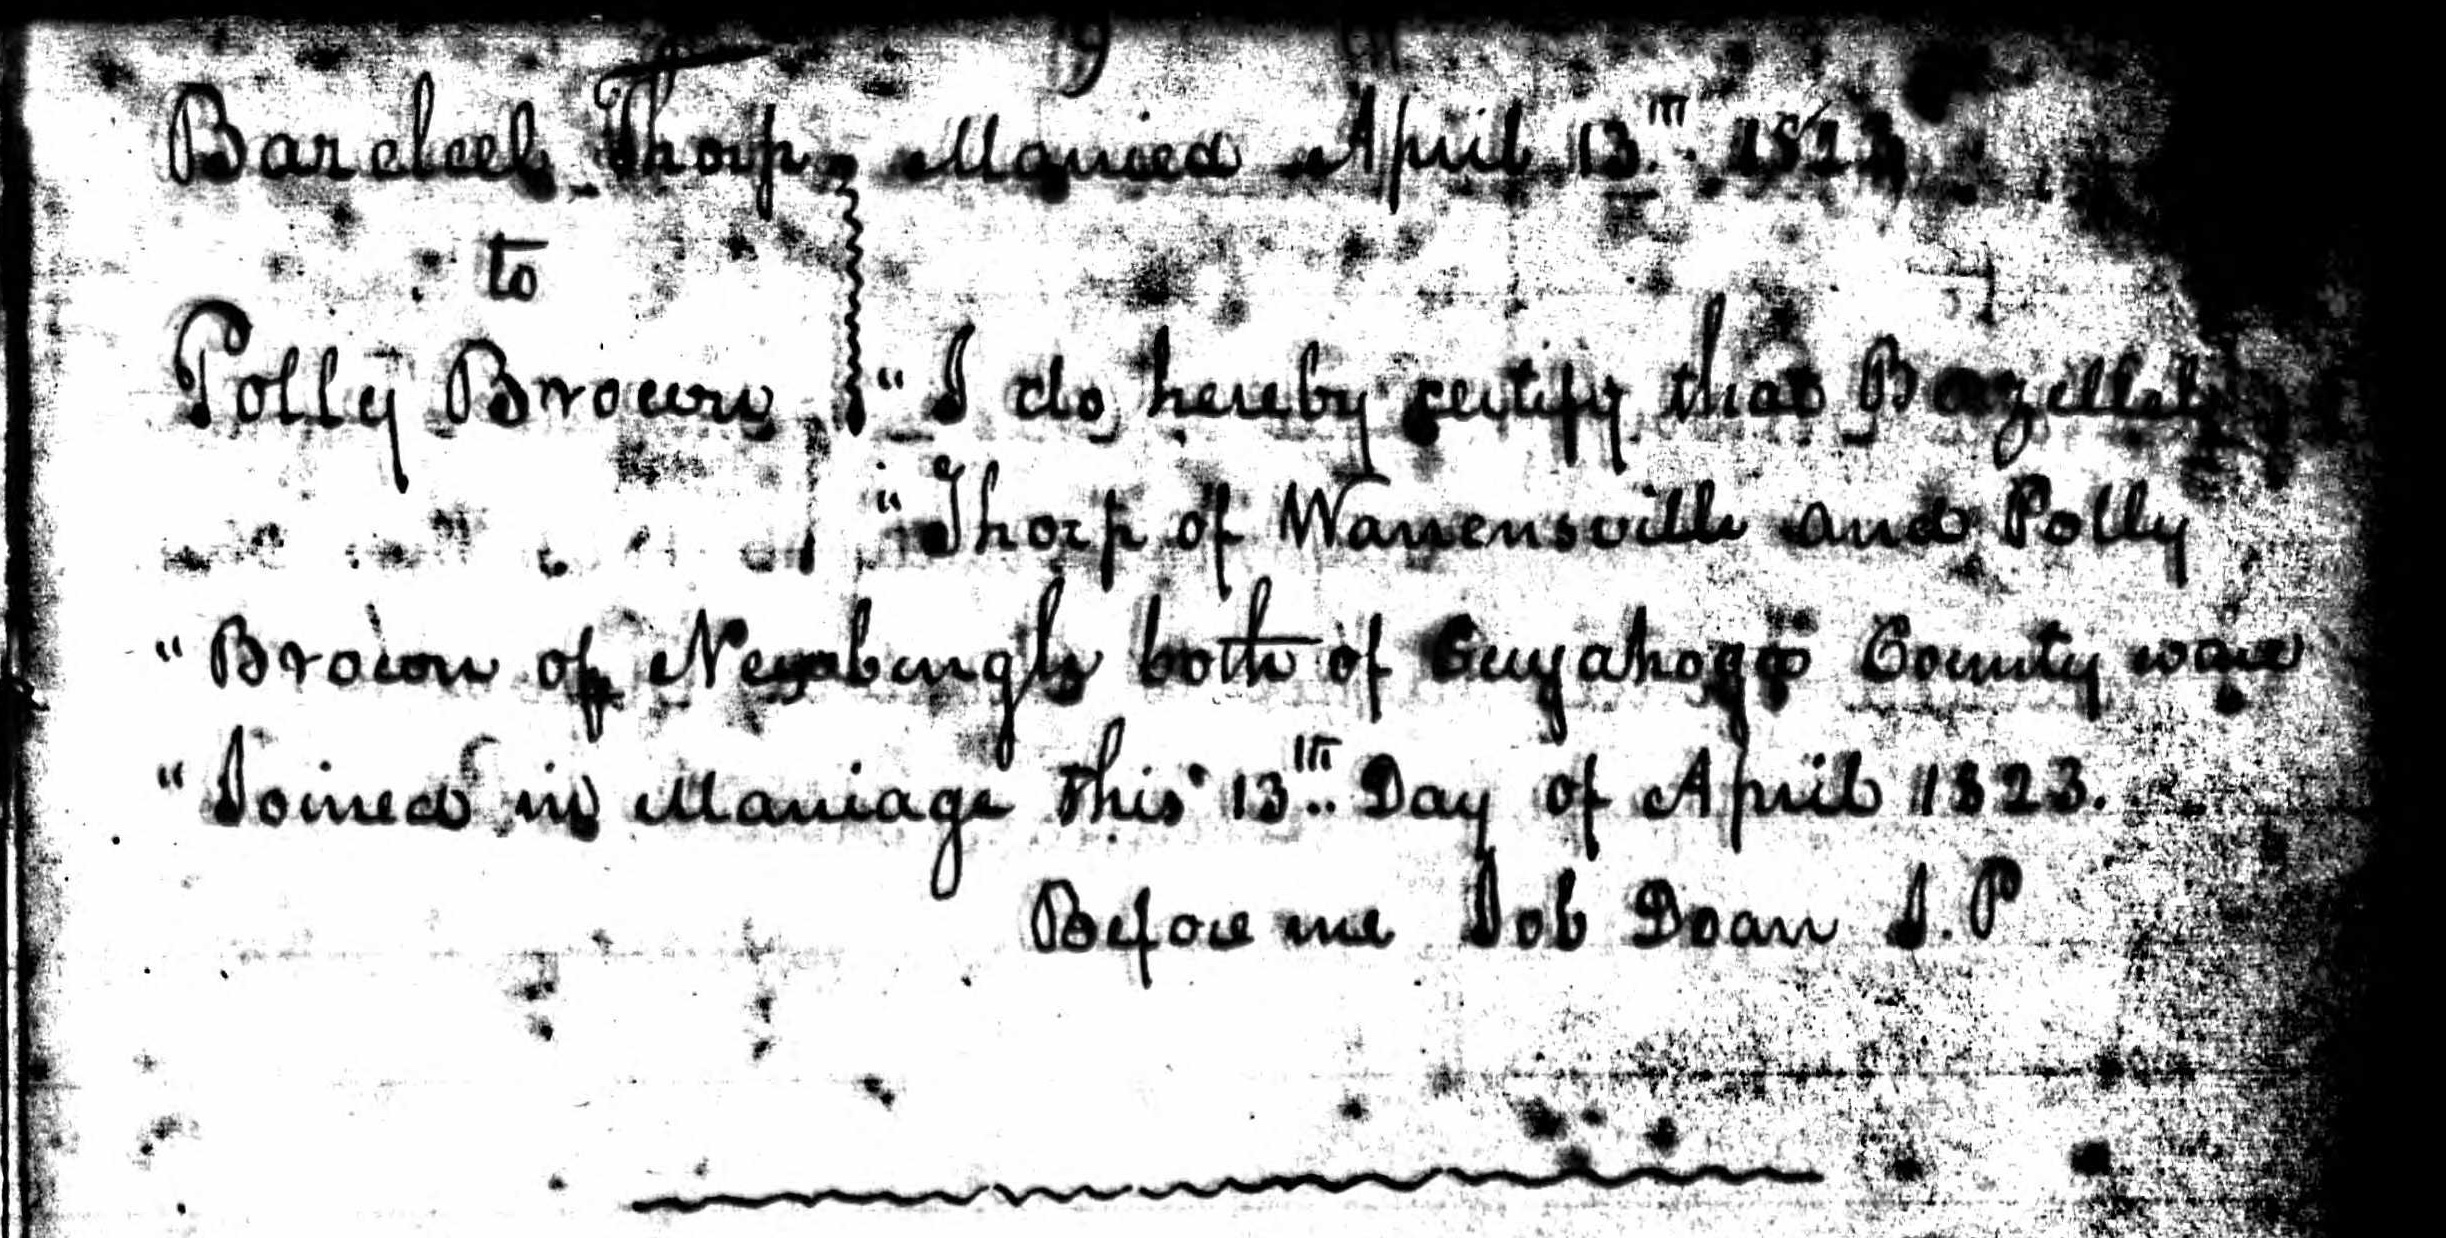 Barzeleel Thorp Married April 13th 1823
to
Polly Brown "I do hereby certify that Bazillel
"Thorp of Warrensville and Polly
"Brown of Newburgh both of Cuyahoga County ware
"Joined in Marriage this 13th Day of April 1823.
Before me Job Doan J.P